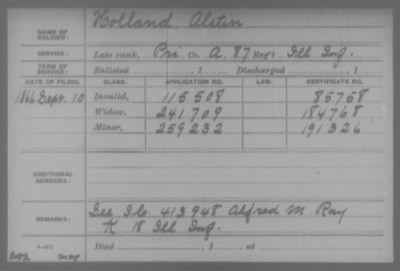 NAME OF SOLDIER: Holland, Alstin
SERVICE: Late rank, Pri Co. A, 87 Reg't Ill Inf.
TERM OF SERVICE: Enlisted , 1 Discharged , 1
DATE OF FILING. CLASS. APPLICATION NO. LAW. CERTIFICATE NO.
1866 Sept. 10 Invalid, 115508 85758
Widow, 241709 184768
Minor, 259232 191326
ADDITIONAL SERVICES:
REMARKS: See I.C. 413948 Alfred M Ray
K 18 Ill Inf.
Died , 1 , at